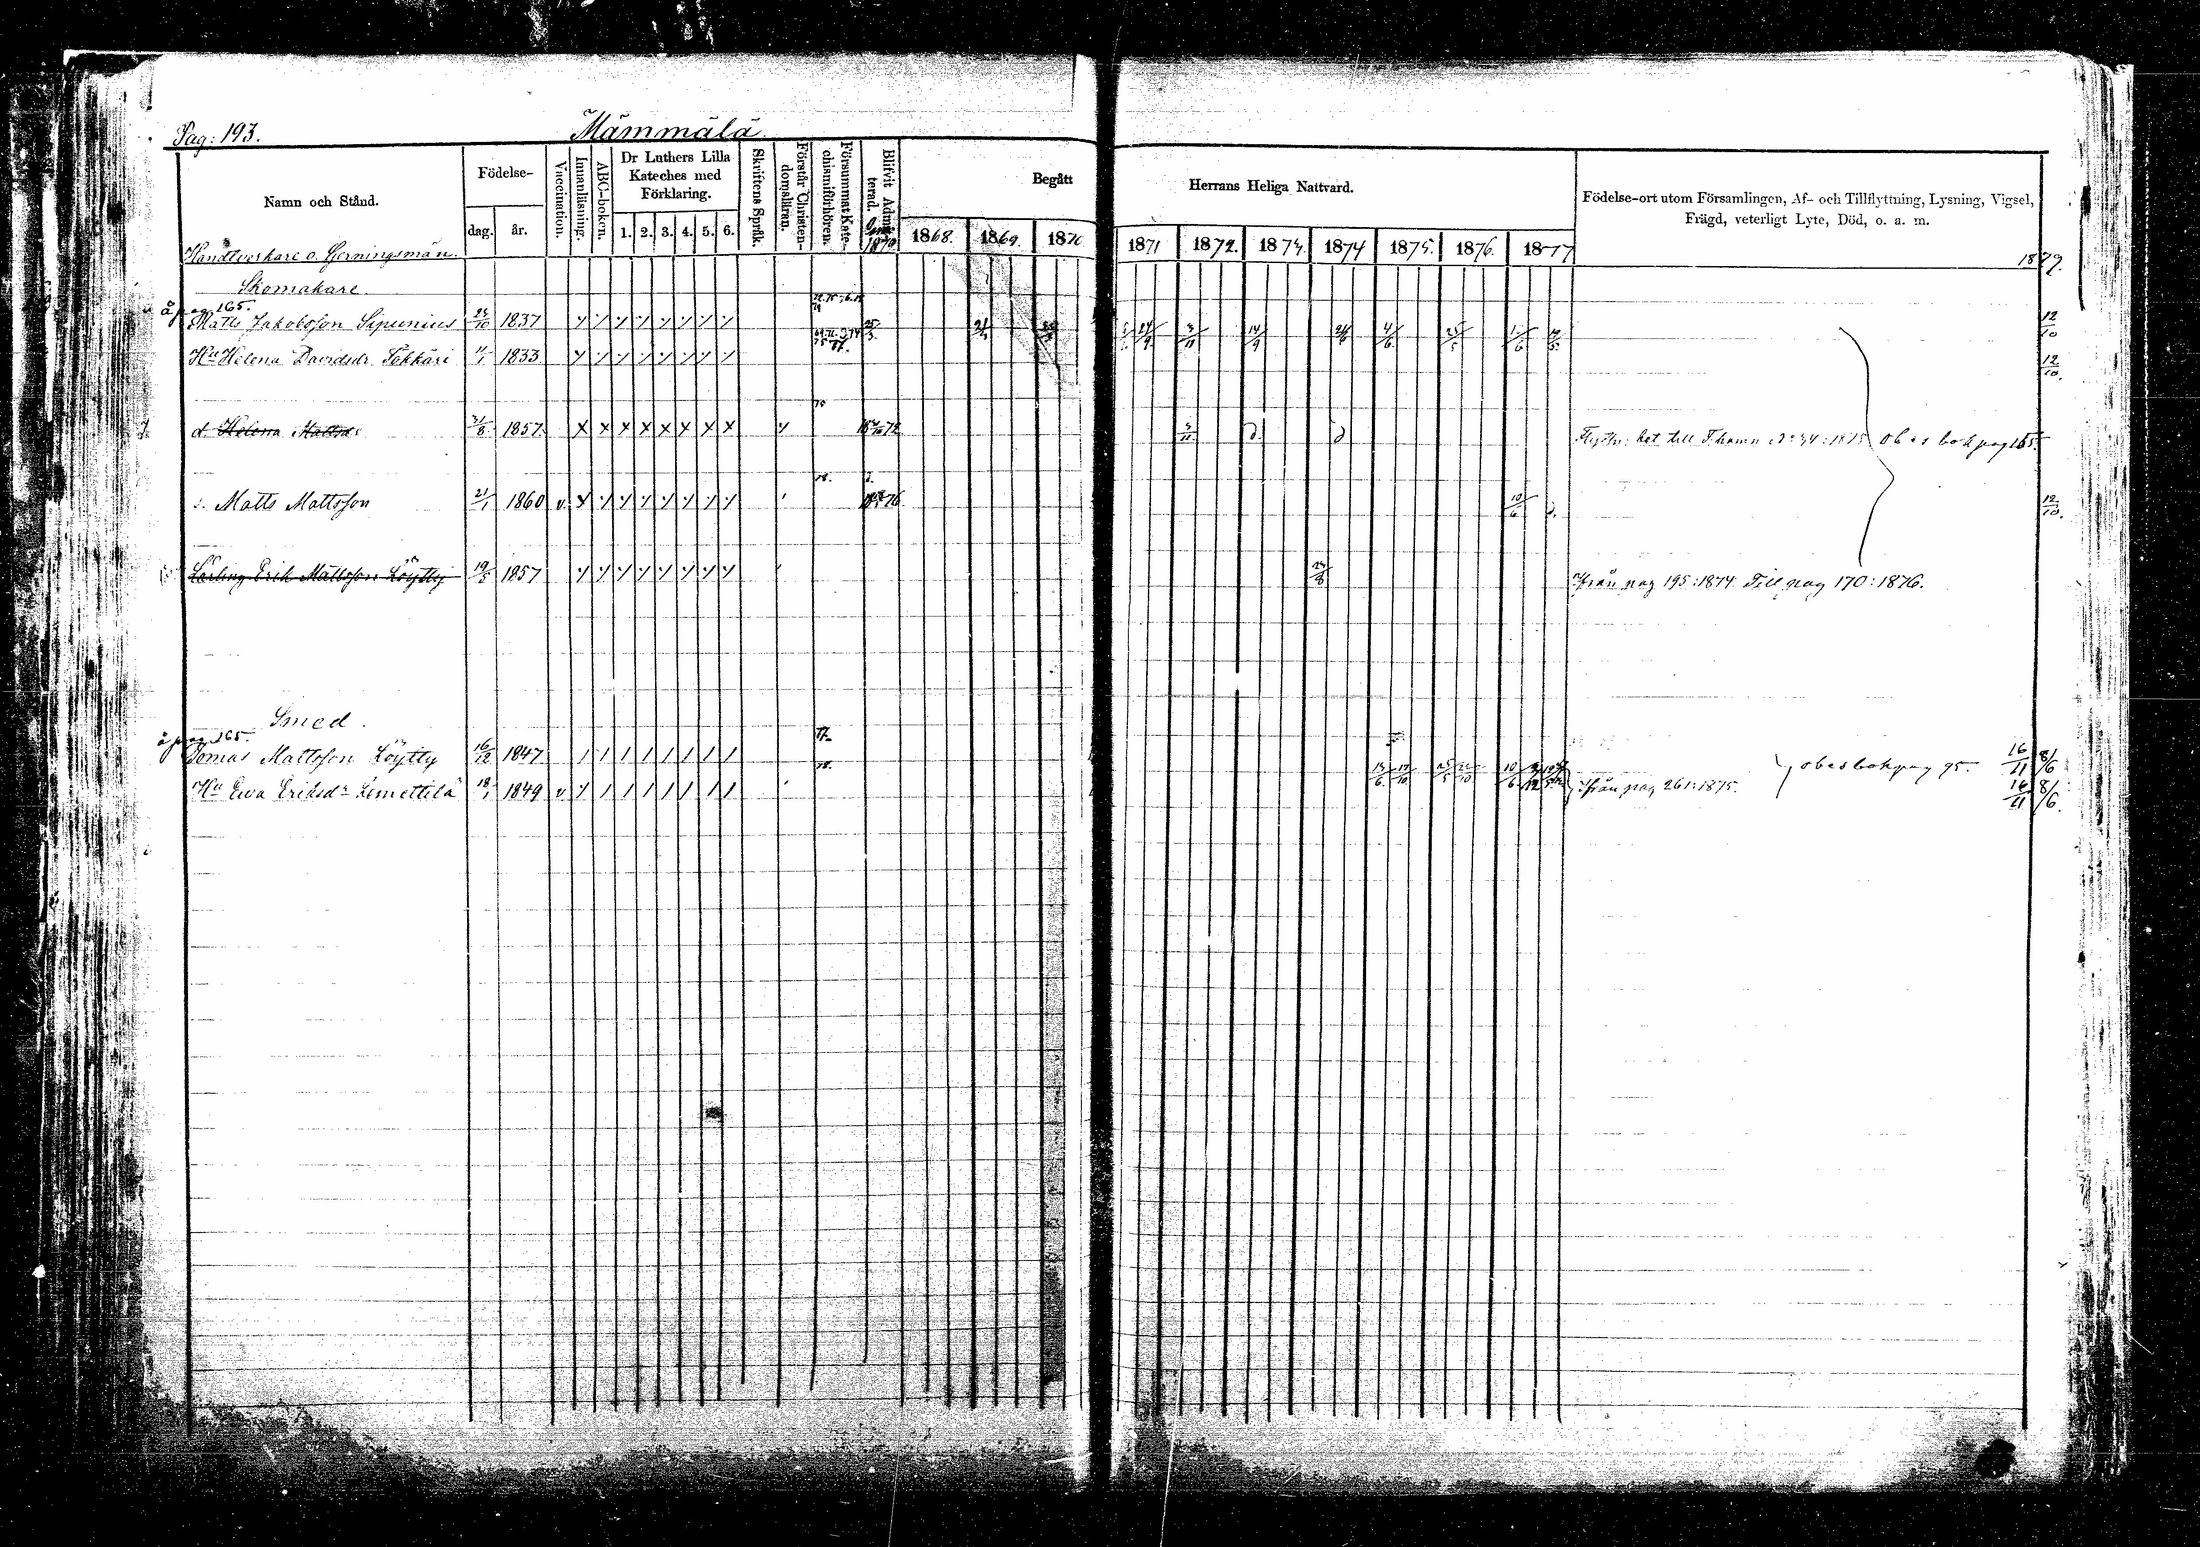 Pag: 193. Mämmälä
Namn och Stånd. Födelse- dag. år. Vaccination. Innanläsning. ABC-boken. Dr Luthers Lilla Kateches med Förklaring. 1. 2. 3. 4. 5. 6. Skriftens Språk. Förstår Christendomsläran. Försummat Katechismiförhören. Blifvit Admitterad. Begått Herrans Heliga Nattvard. 1868. 1869. 1870 1871 1872. 1873. 1874 1875. 1876. 1877 Födelse-ort utom Församlingen, Af- och Tillflyttning, Lysning, Vigsel, Frägd, veterligt Lyte, Död, o. a. m. 1879.
Handtverkare o. Gerningsmän.
Skomakare
å pag 165.
Matts Jakobsson Sipunius 1837 12/10
Hu Helena Davidsdr Tökkäri 1833 12/10.
d. Helena Mattsdr 31/8 1857. 72 1875 obes bok pag 165.
s. Matts Mattsson 21/1 1860 v. 76 10/6 12/10.
Lärling Erik Mattsson Löytty 19/5 1857 Ifrån pag 195:1874 Till pag 170:1876.
Smed.
å pag 165.
Tomas Mattsson Löytty 16/12 1847 77 obesbokpag 95. 16/11 8/6
Hu Ewa Eriksdr Simettilä 18/1 1849 v 78. Ifrån pag 261:1875. 16/11 8/6.